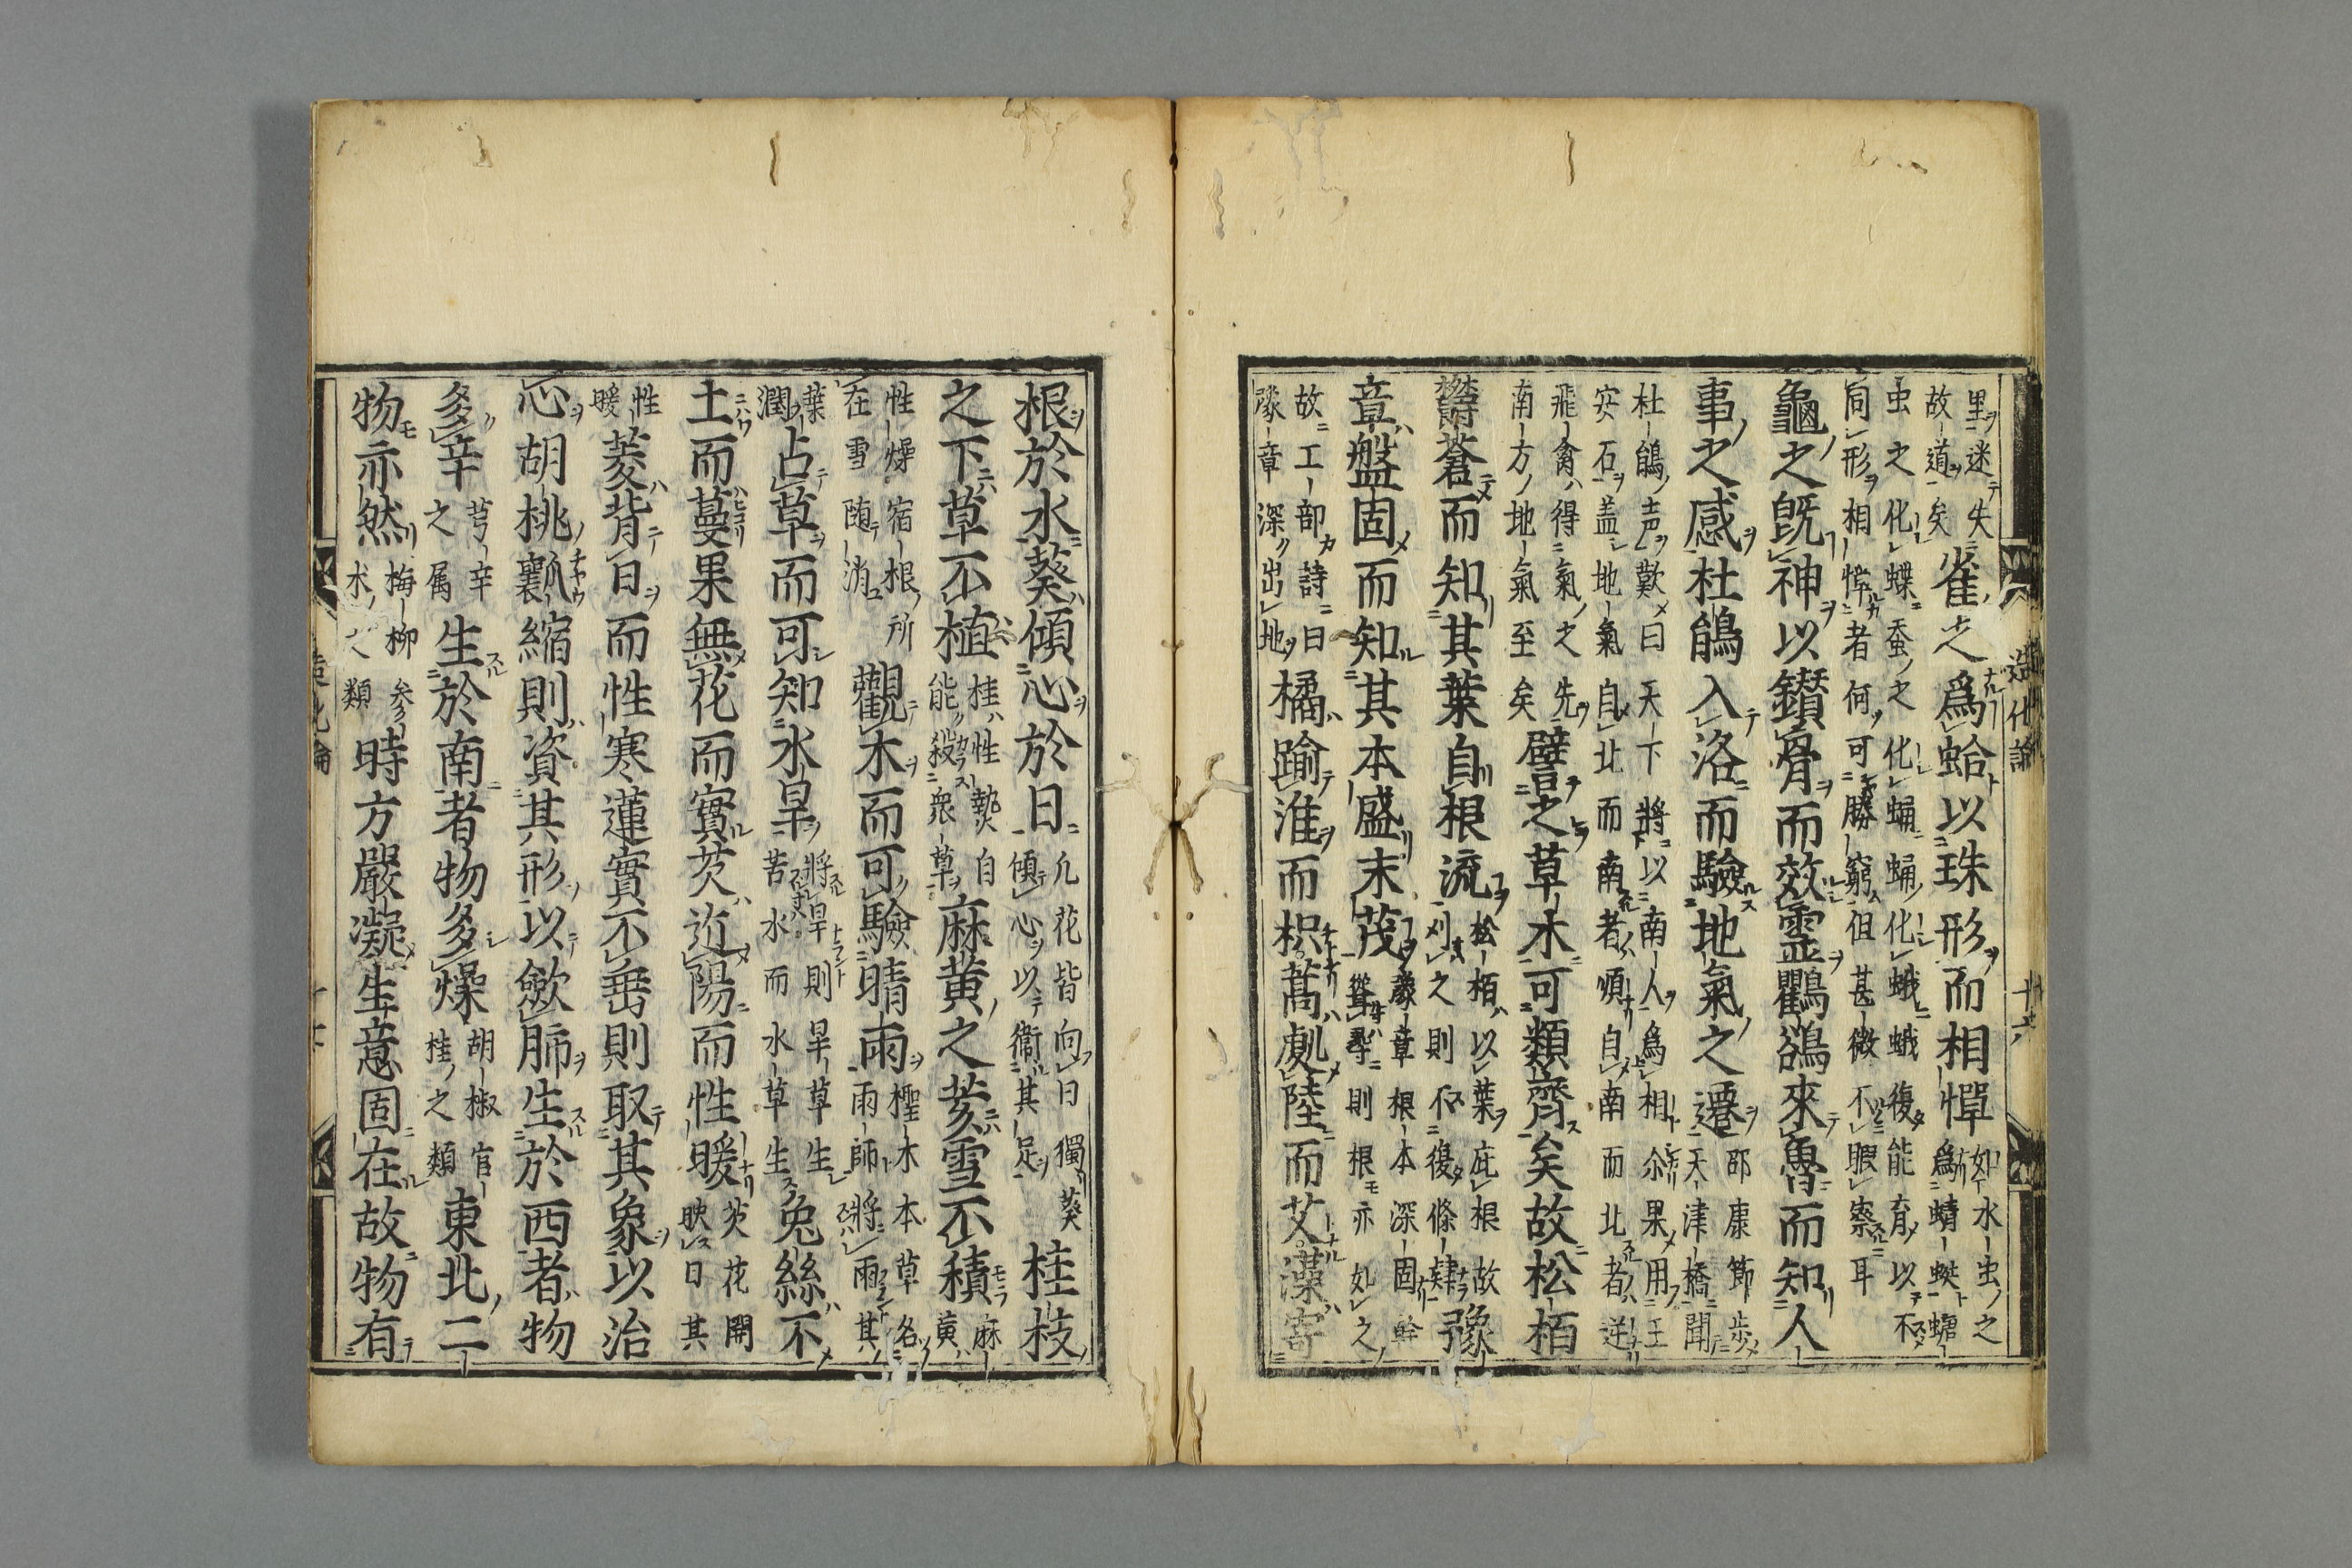 里迷失
故道矣
雀之爲蛤以珠形而相憚
如水虫之
爲蜻蜓蟷
虫之化蝶蚕之化蛹蛹化蛾蛾復能育以不
同形相憚者何可勝窮但甚微不暇察耳
龜之既神以鑚骨而效霊鸜鵒來魯而知人
事之感杜鵑入洛而驗地氣之遷
邵康節歩
天津橋聞
杜鵑声歎曰天下將以南人爲相尒果用王
安石盖地氣自北而南者順自南而北者逆
飛禽得氣之先
南方地氣至矣
譬之草木可類齊矣故松栢
欝蒼而知其葉自根流
松栢以葉庇根故
刈之則不復條肄
豫
章盤固而知其本盛末茂
豫章根本深固幹
聳尋則根亦如之
故工部詩曰
豫章深出地
橘踰淮而枳蒿劇陸而艾藻寄
造化論
十六
根於水葵傾心於日
凢花皆向日獨葵
傾心以衞其足
桂枝
之下草不植
桂性熱自
能殺衆草
麻黄之荄雪不積
麻
黄
性燥宿根所
在雪随消
觀木而可驗晴雨
檉木本草名
雨師將雨其
葉
潤
占草而可知水旱
將旱則旱草生
苦水而水草生
兔絲不
土而蔓果無花而實芡近陽而性暖
芡花開
映日其
性
暖
菱背日而性寒蓮實不畄則取其象以治
心胡桃瓜襄縮則資其形以歛肺生於西者物
多辛
芎辛
之属
生於南者物多燥
胡椒官
桂之類
東北二
物亦然
梅柳参
朮之類
時方嚴凝生意固在故物有